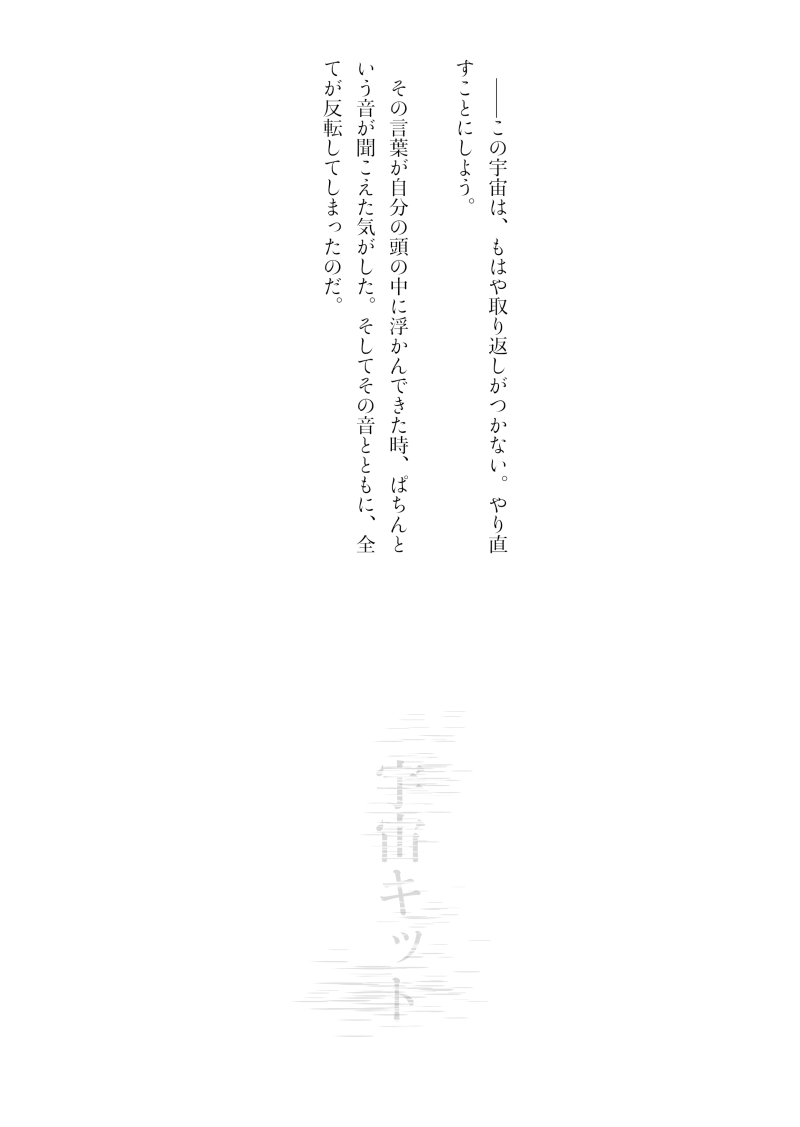 ――この宇宙は、もはや取り返しがつかない。やり直
すことにしよう。
その言葉が自分の頭の中に浮かんできた時、ぱちんと
いう音が聞こえた気がした。そしてその音とともに、全
てが反転してしまったのだ。
宇宙キット